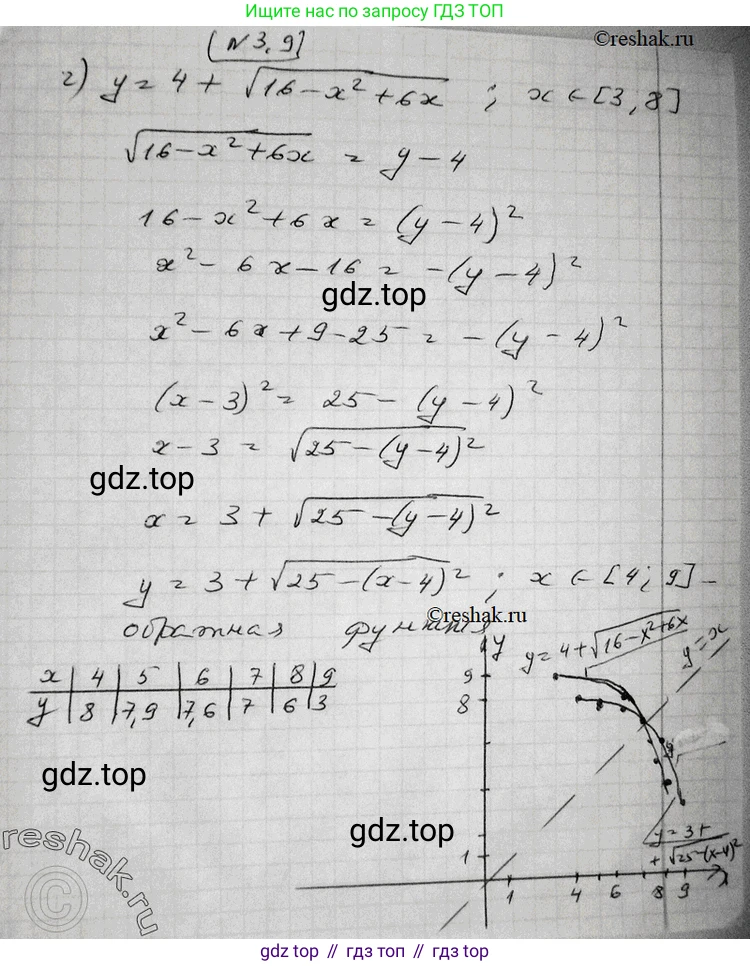 Ищите нас по запросу ГДЗ ТОП
[№3,9]
©reshak.ru
г) y = 4 + √(16-x²+6x) ; x ∈ [3,8]
√(16-x²+6x) = y-4
16-x²+6x = (y-4)²
x²-6x-16 = -(y-4)²
gdz.top
x²-6x+9-25 = -(y-4)²
(x-3)² = 25-(y-4)²
x-3 = √(25-(y-4)²)
gdz.top
x = 3+√(25-(y-4)²)
y = 3+√(25-(x-4)²) ; x ∈ [4; 9] -
©reshak.ru
обратная функция
x | 4 | 5 | 6 | 7 | 8 | 9
y | 8 | 7,9 | 7,6 | 7 | 6 | 3
y
y=4+√(16-x²+6x)
y=x
9
8
gdz.top
gdz.top
y=3+
+√(25-(x-4)²
1
1 4 6 8 9 x
reshak.ru
©
gdz top // гдз топ // gdz top